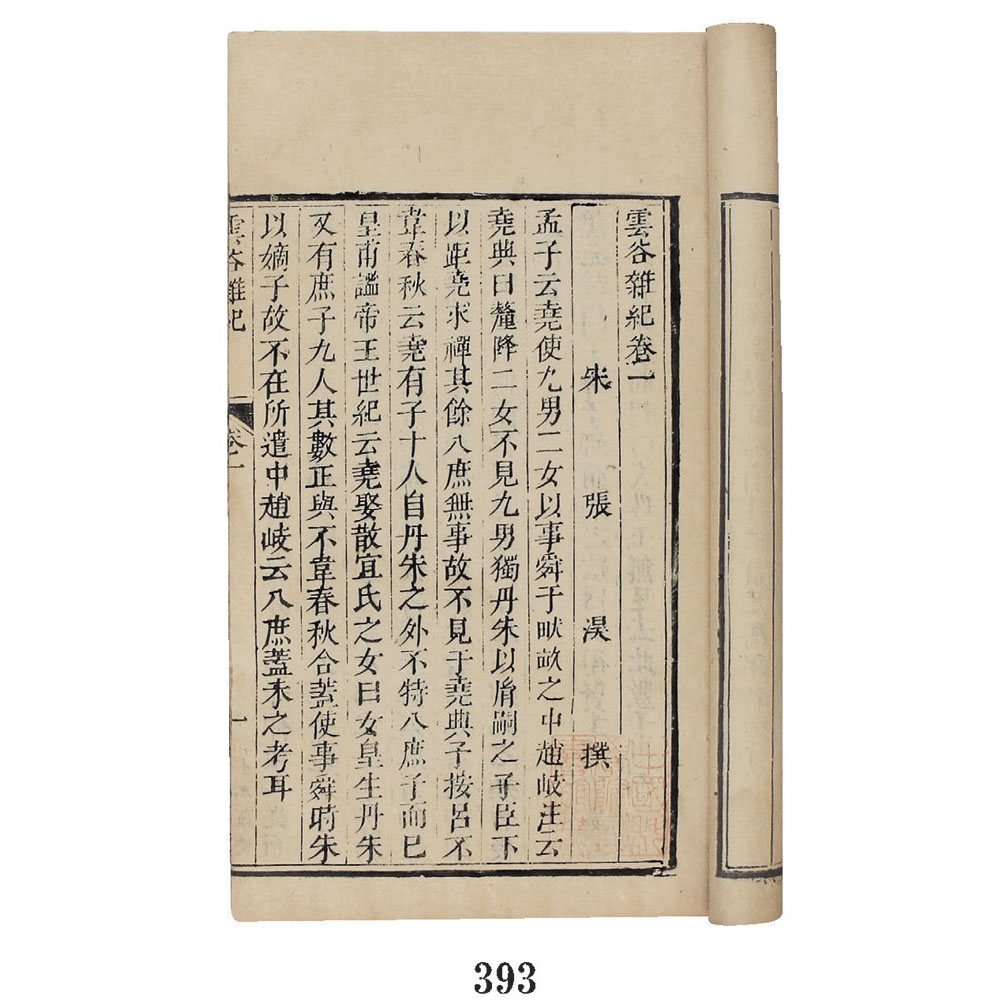 雲谷雜紀卷一
宋 張 淏 撰
孟子云堯使九男二女以事舜于畎畝之中趙岐注云
堯典曰釐降二女不見九男獨丹朱以胤嗣之子臣下
以距堯求禪其餘八庶無事故不見于堯典予按呂不
韋春秋云堯有子十人自丹朱之外不特八庶子而已
皇甫謐帝王世紀云堯娶散宜氏之女曰女皇生丹朱
又有庶子九人其數正與不韋春秋合葢使事舜時朱
以嫡子故不在所遣中趙岐云八庶葢未之考耳
雲谷雜紀
卷一
一
393